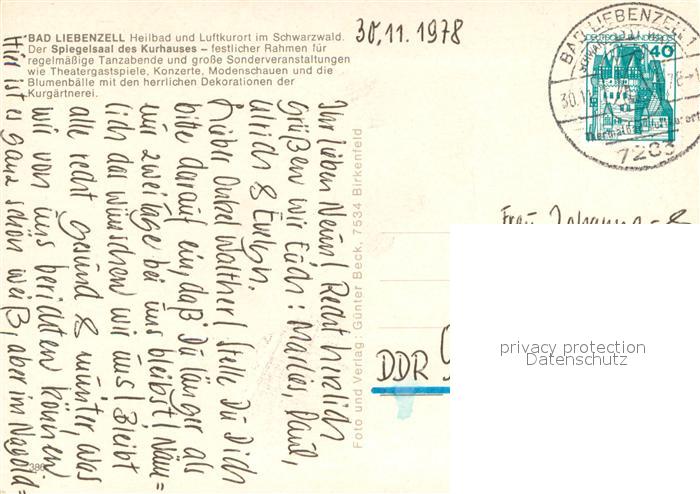 BAD LIEBENZELL Heilbad und Luftkurort im Schwarzwald.
Der Spiegelsaal des Kurhauses – festlicher Rahmen für
regelmäßige Tanzabende und große Sonderveranstaltungen
wie Theatergastspiele, Konzerte, Modenschauen und die
Blumenbälle mit den herrlichen Dekorationen der
Kurgärtnerei.
30.11.1978
BAD LIEBENZELL 1
30.11.
7263
DEUTSCHE BUNDESPOST
40
Ihr lieben Neun! Recht herzlich
grüßen wir Euch: Paul,
Ulrich & Evelyn.
Lieber Onkel Walther! Stelle Du Dich
bitte darauf ein, daß Du länger als
nur zwei Tage bei uns bleibst! Näm=
lich das wünschen wir uns! Bleibt
alle recht gesund & munter, was
wir von uns berichten können.
Hier ist es ganz schön weiß, aber im Nagold=
Foto und Verlag: Günter Beck, 7534 Birkenfeld
Frau Johanna
DDR
386
privacy protection
Datenschutz